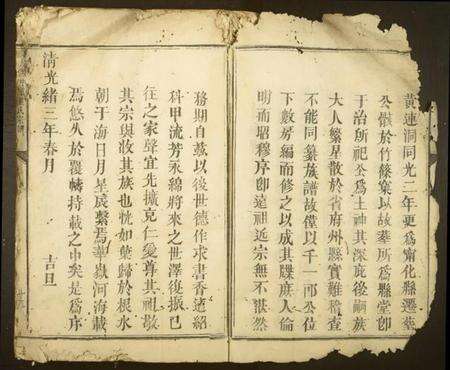 黄連洞同光二年更爲甯化縣遷葬
公骸於竹篠窠以故墓所爲縣堂卽
于治所祀公爲土神其深庇後嗣族
大人繁星散於省府州縣實難稽查
不能同纂族譜故僅以千一郎公位
下數房編而修之以成其牒庶人倫
明而昭穆序卽遠祖近宗無不湛然
務期自茲以後世德作求書香遠紹
科甲流芳永綿將來之世澤後振已
往之家聲宜先擴克仁愛尊其祖敬
其宗與收其族也恍如葉歸於根水
朝于海日月星辰繫焉華嶽河海載
焉悠久於覆幬持載之中矣是爲序
清光緒三年春月 吉旦